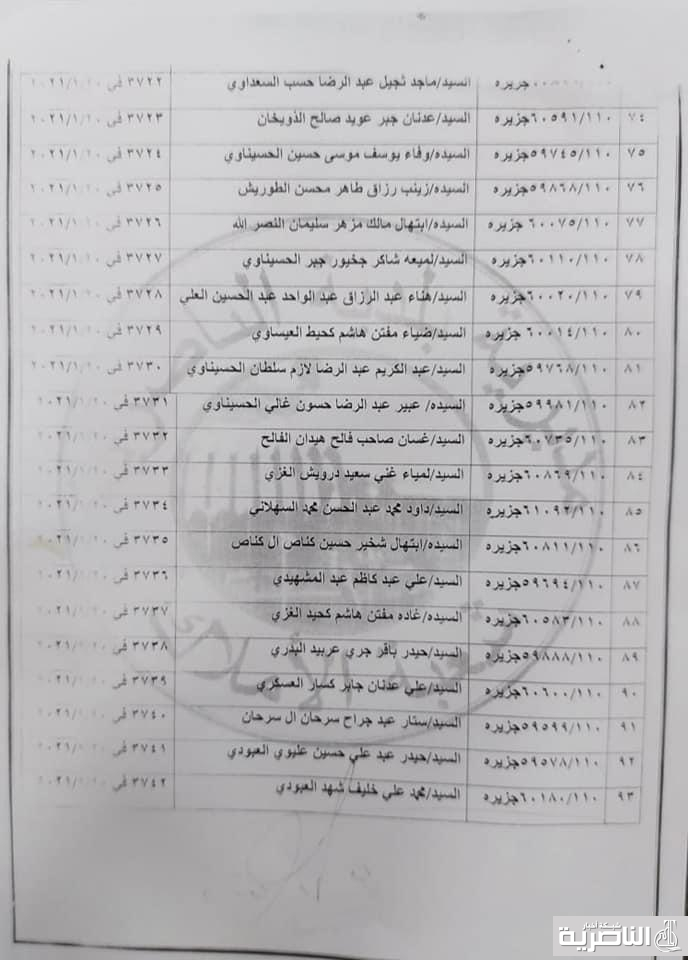 جزيره السيد/ماجد ثجيل عبد الرضا حسب السعداوي ٣٧٢٢ في ٢٠٢١/١/٢٠
٧٤ ٦٠٥٩١/١١٠جزيره السيد/عدنان جبر عويد صالح الذويخان ٣٧٢٣ في ٢٠٢١/١/٢٠
٧٥ ٥٩٧٤٥/١١٠جزيره السيده/وفاء يوسف موسى حسين الحسيناوي ٣٧٢٤ في ٢٠٢١/١/٢٠
٧٦ ٥٩٨٦٨/١١٠جزيره السيده/زينب رزاق طاهر محسن الطوريش ٣٧٢٥ في ٢٠٢١/١/٢٠
٧٧ ٦٠٠٧٥/١١٠ جزيره السيده/ابتهال مالك مزهر سليمان النصر الله ٣٧٢٦ في ٢٠٢١/١/٢٠
٧٨ ٦٠١١٠/١١٠جزيره السيده/لميعه شاكر جخيور جبر الحسيناوي ٣٧٢٧ في ٢٠٢١/١/٢٠
٧٩ ٦٠٠٢٠/١١٠ جزيره السيده/هناء عبد الرزاق عبد الواحد عبد الحسين العلي ٣٧٢٨ في ٢٠٢١/١/٢٠
٨٠ ٦٠٠١٤/١١٠ جزيره السيد/ضياء مفتن هاشم كحيط العيساوي ٣٧٢٩ في ٢٠٢١/١/٢٠
٨١ ٥٩٧٦٨/١١٠جزيره السيد/عبد الكريم عبد الرضا لازم سلطان الحسيناوي ٣٧٣٠ في ٢٠٢١/١/٢٠
٨٢ ٥٩٩٨١/١١٠جزيره السيده/ عبير عبد الرضا حسون غالي الحسيناوي ٣٧٣١ في ٢٠٢١/١/٢٠
٨٣ ٦٠٧٣٥/١١٠جزيره السيد/غسان صاحب فالح هيدان الفالح ٣٧٣٢ في ٢٠٢١/١/٢٠
٨٤ ٦٠٨٦٩/١١٠جزيره السيده/لمياء غني سعيد درويش الغزي ٣٧٣٣ في ٢٠٢١/١/٢٠
٨٥ ٦١٠٩٢/١١٠جزيره السيد/داود محمد عبد الحسن محمد السهلاني ٣٧٣٤ في ٢٠٢١/١/٢٠
٨٦ ٦٠٨١١/١١٠جزيره السيده/ابتهال شخير حسين كناص ال كناص ٣٧٣٥ في ٢٠٢١/١/٢٠
٨٧ ٥٩٦٩٤/١١٠جزيره السيد/علي عبد كاظم عبد المشهيدي ٣٧٣٦ في ٢٠٢١/١/٢٠
٨٨ ٦٠٥٨٣/١١٠جزيره السيده/غاده مفتن هاشم كحيد الغزي ٣٧٣٧ في ٢٠٢١/١/٢٠
٨٩ ٥٩٨٨٨/١١٠جزيره السيد/حيدر باقر جري عربيد البدري ٣٧٣٨ في ٢٠٢١/١/٢٠
٩٠ ٦٠٦٠٠/١١٠جزيره السيد/علي عدنان جابر كسار العسكري ٣٧٣٩ في ٢٠٢١/١/٢٠
٩١ ٥٩٥٩٩/١١٠جزيره السيد/ستار عبد جراح سرحان ال سرحان ٣٧٤٠ في ٢٠٢١/١/٢٠
٩٢ ٥٩٥٧٨/١١٠جزيره السيد/حيدر عبد علي حسين عليوي العبودي ٣٧٤١ في ٢٠٢١/١/٢٠
٩٣ ٦٠١٨٠/١١٠جزيره السيد/محمد علي خليف شهد العبودي ٣٧٤٢ في ٢٠٢١/١/٢٠
شعبة الأملاك
شبكة اخبار
الناصرية